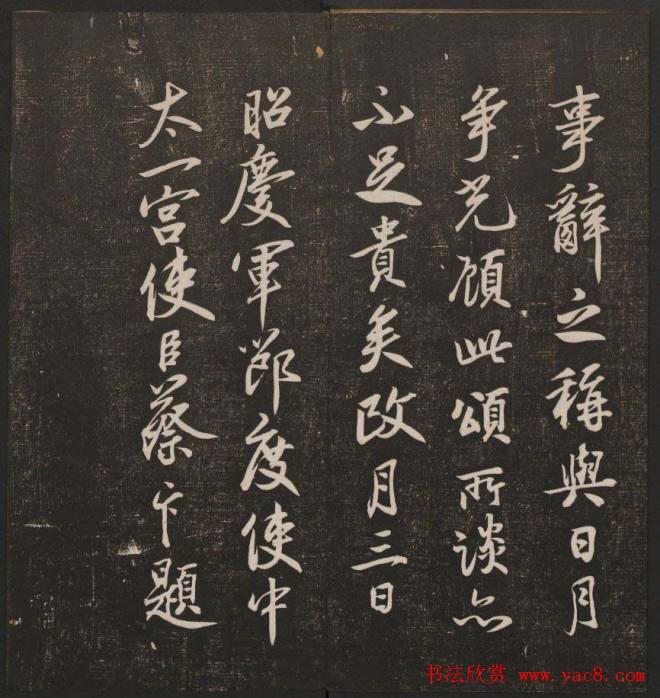 事辭之稱與日月
争光顧此頌所談亦
不足貴矣政月三日
昭慶軍節度使中
太一宮使臣蔡卞題
书法欣赏 www.yac8.com